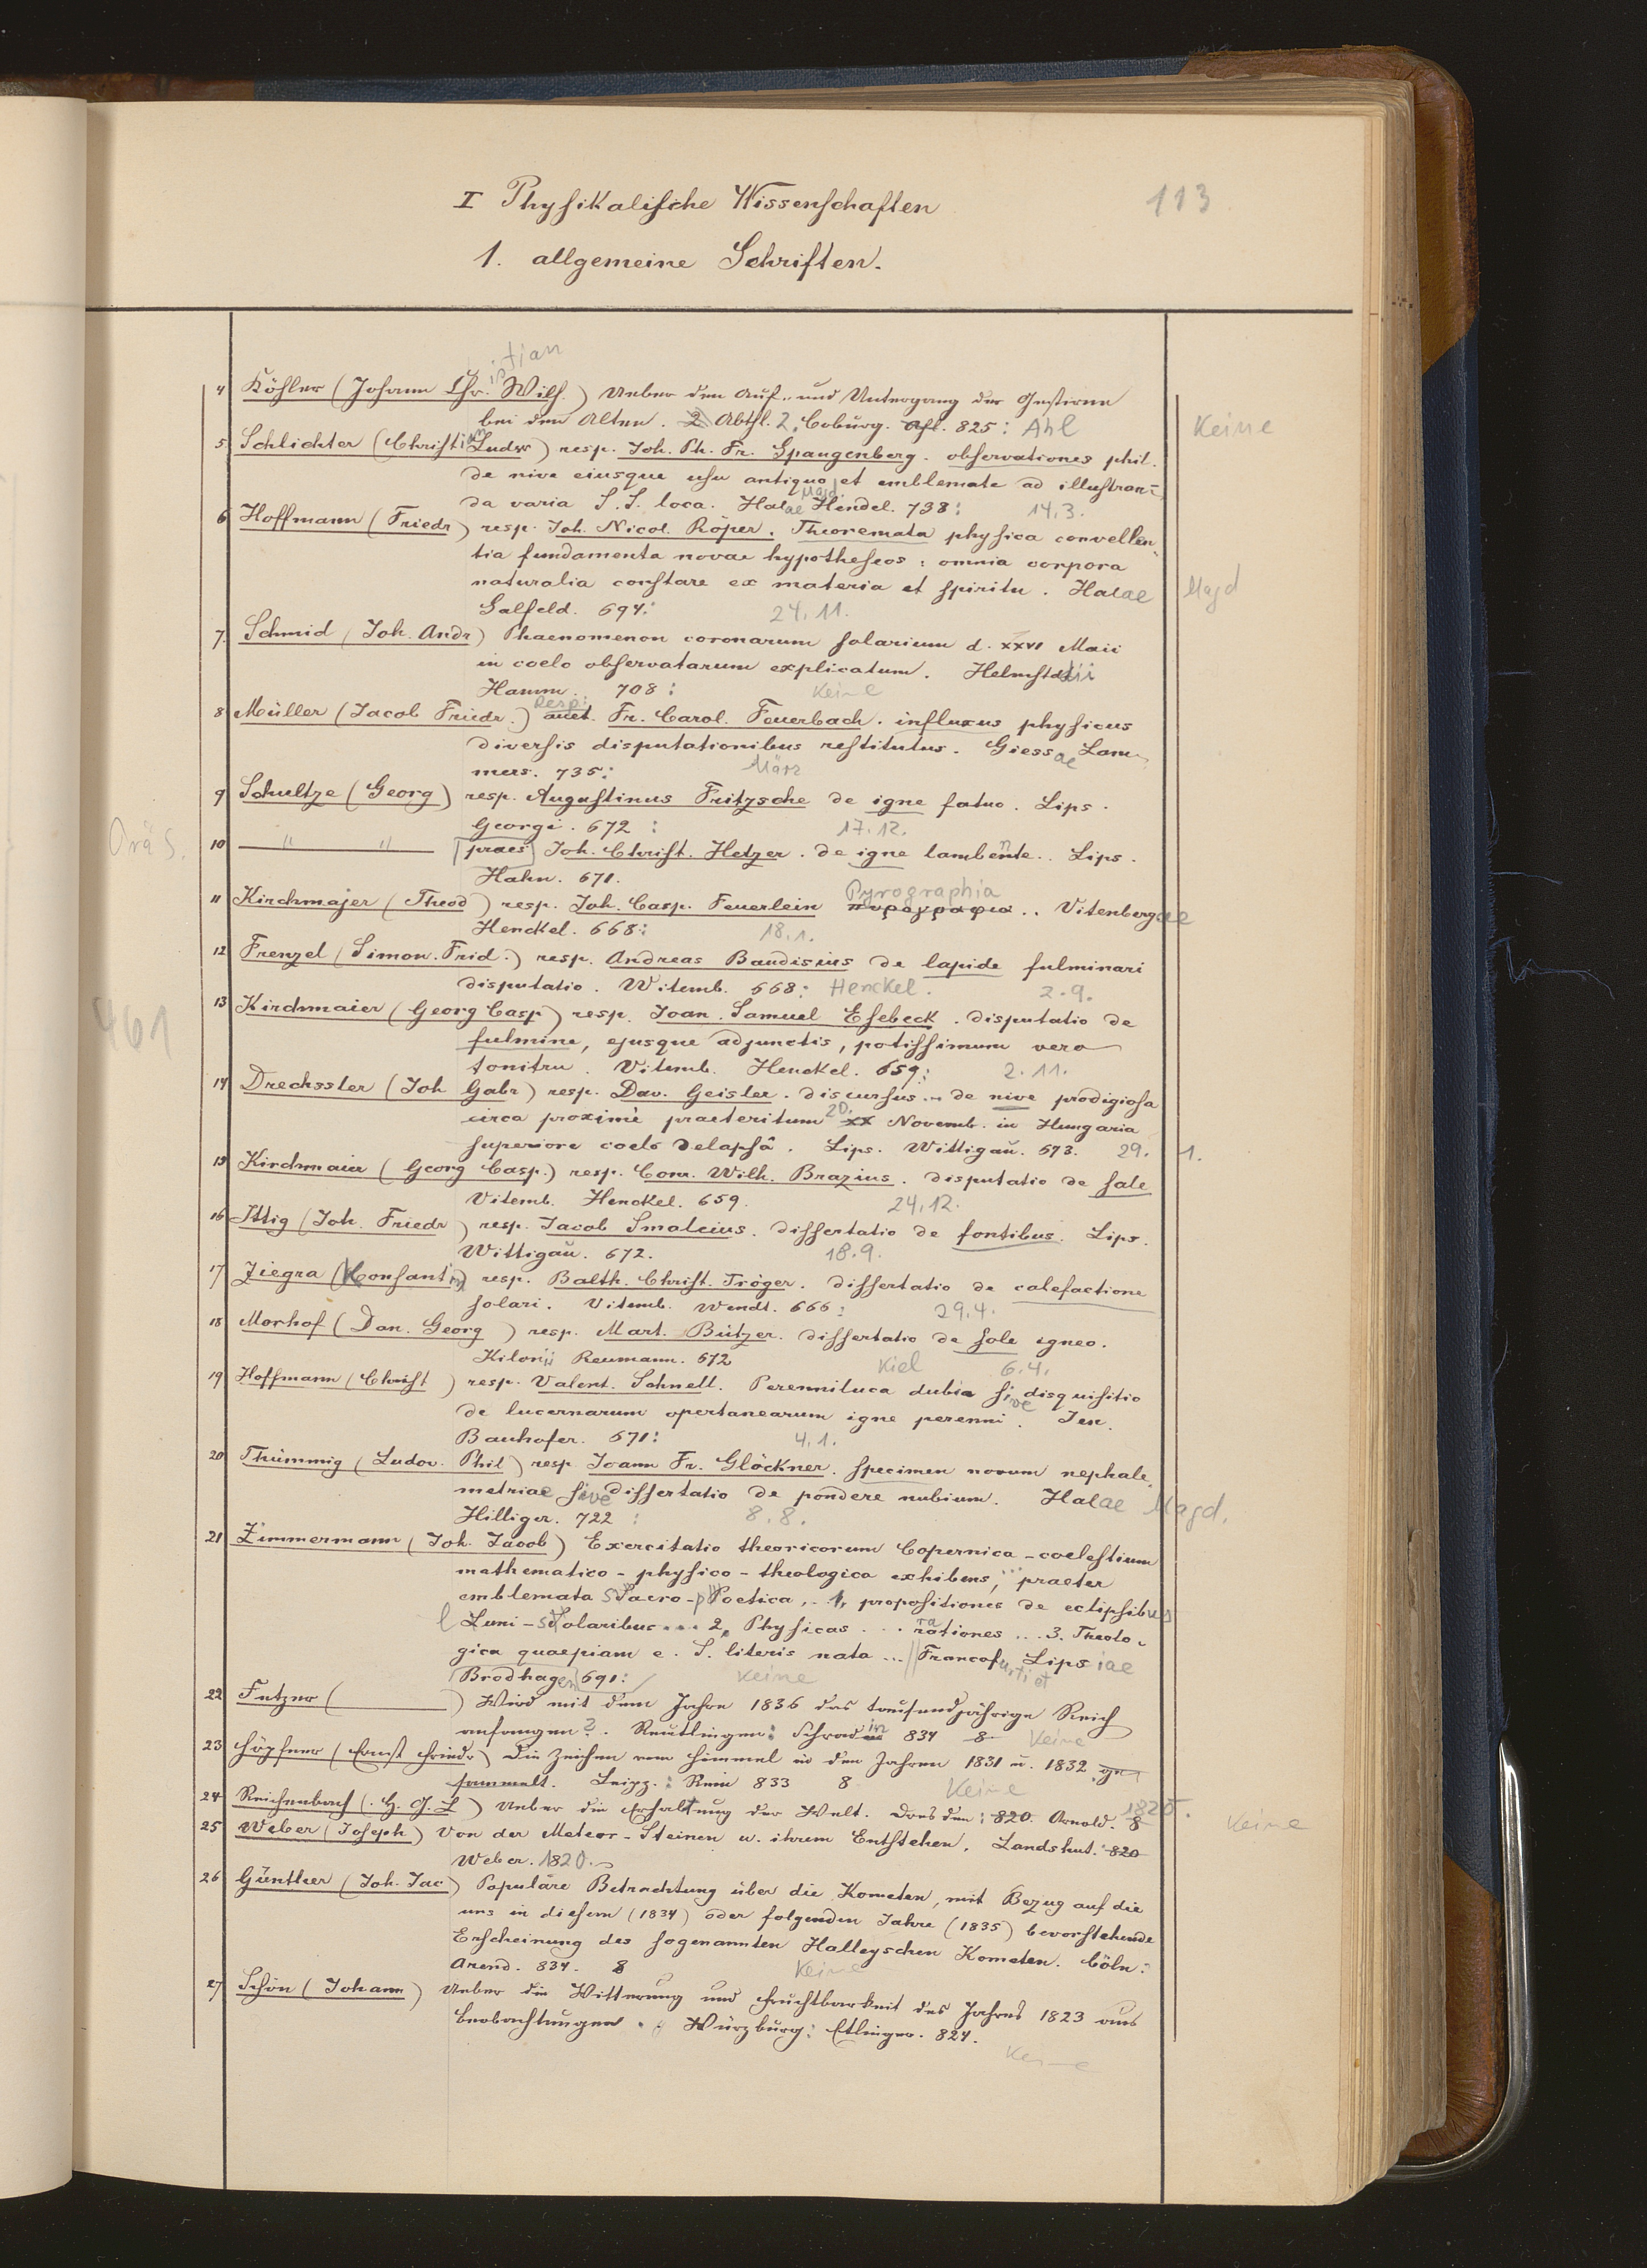 I Physikalische Wissenschaften
113
1. allgemeine Schriften.
istian
4 Köhler (Johann Chr. Wilh.) Ueber den Auf- und Untergang der Gestirne
bei den Alten. 2 Abthl. 2. Coburg. Ahl. 825: Ahl
Keine
5 Schlichter (Christian Ludw) resp. Joh. Ph. Fr. Spangenberg. observationes phil.
de nive eiusque usu antiquo et emblemate ad illustran-
da varia S. S. loca. Halae Magd. Hendel. 738: 14.3.
6 Hoffmann (Friedr) resp. Joh. Nicol. Röper. Theoremata physica convellen-
tia fundamenta novae hypotheseos: omnia corpora
naturalia constare ex materia et spiritu. Halae Magd
Salfeld. 694: 24.11.
7. Schmid (Joh. Andr) Phaenomenon coronarum solarium d. XXVI Maii
in coelo observatarum explicatum. Helmstadii
Hamm. 708: Keine
8 Müller (Jacob Friedr.) auct. resp: Fr. Carol. Feuerbach. influxus physicus
diversis disputationibus restitutus. Giessae Lam-
mers. 735: März
9 Schultze (Georg) resp. Augustinus Fritzsche de igne fatuo. Lips.
Georgi. 672: 17.12.
Präs.
10 " " [praes] Joh. Christ. Hetzer. de igne lambente.. Lips.
Hahn. 671.
11 Kirchmajer (Theod) resp. Joh. Casp. Feuerlein Pyrographia πυρογραφια.. Vitenbergae
Henckel. 668: 18.1.
12 Frenzel (Simon. Frid.) resp. Andreas Baudisius de lapide fulminari
disputatio. Witemb. 668: Henckel. 2.9.
461
13 Kirchmaier (Georg Casp) resp. Joan. Samuel Esebeck. disputatio de
fulmine, ejusque adjunctis, potissimum vero
tonitru. Vitemb. Henckel. 659: 2.11.
14 Drechssler (Joh Gabr) resp. Dav. Geisler. discursus.. de nive prodigiosa
circa proximè praeteritum 20. XX Novemb. in Hungaria
superiore coelo delapsâ. Lips. Wittigau. 673. 29. 1.
15 Kirchmaier (Georg Casp.) resp. Conr. Wilh. Brazius. disputatio de sale
Vitemb. Henckel. 659. 24.12.
16 Ittig (Joh. Friedr) resp. Jacob Smalcius. dissertatio de fontibus. Lips.
Wittigau. 672. 18.9.
17 Ziegra (Konstantin) resp. Balth. Christ. Tröger. dissertatio de calefactione
solari. Vitemb. Wendt. 666: 29.4.
18 Morhof (Dan. Georg) resp. Mart. Bützer. dissertatio de sole igneo.
Kilonii Reumann. 672 Kiel 6.4.
19 Hoffmann (Christ) resp. Valent. Schnell. Perenniluca dubia sive disquisitio
de lucernarum opertanearum igne perenni. Jen.
Bauhofer. 671: 4.1.
20 Thümmig (Ludov. Phil) resp Joann Fr. Glöckner. specimen novum nephale
metriae sive dissertatio de pondere nubium. Halae Magd.
Hilliger. 722: 8.8.
21 Zimmermann (Joh. Jacob) Exercitatio theoricorum Copernica-coelestium
mathematico-physico-theologica exhibens, ... praeter
emblemata Sacro-Poetica, .. 1, propositiones de eclipsibus
Luni-Solaribus ... 2, Physicas ... rationes ... 3. Theolo-
gica quaepiam e. S. literis nata ... Francofurti et Lipsiae
Brodhagen 691: Keine
22 Fetzer ( ) Wird mit dem Jahre 1836 das tausendjährige Reich
anfangen? . Reutlingen: Schradin 834 8 Keine
23 Höpfner (Ernst Friedr) Die Zeichen vom Himmel in den Jahren 1831 u. 1832 ge-
sammelt. Leipz.: Rein 833 8 Keine
24 Reichenbach (H. G. L) Ueber die Erhaltung der Welt. Dresden: 820 Arnold. 8 1820.
Keine
25 Weber (Joseph) Von den Meteor-Steinen u. ihrem Entstehen. Landshut: 820
Weber. 1820.
26 Günther (Joh. Jac) Populäre Betrachtung über die Kometen, mit Bezug auf die
uns in diesem (1834) oder folgenden Jahre (1835) bevorstehende
Erscheinung des sogenannten Halleyschen Kometen. Cöln:
Arend. 834. 8 Keine
27 Schön (Johann) Ueber die Witterung und Fruchtbarkeit des Jahres 1823 aus
Beobachtungen. Würzburg: Etlinger. 824.
Keine